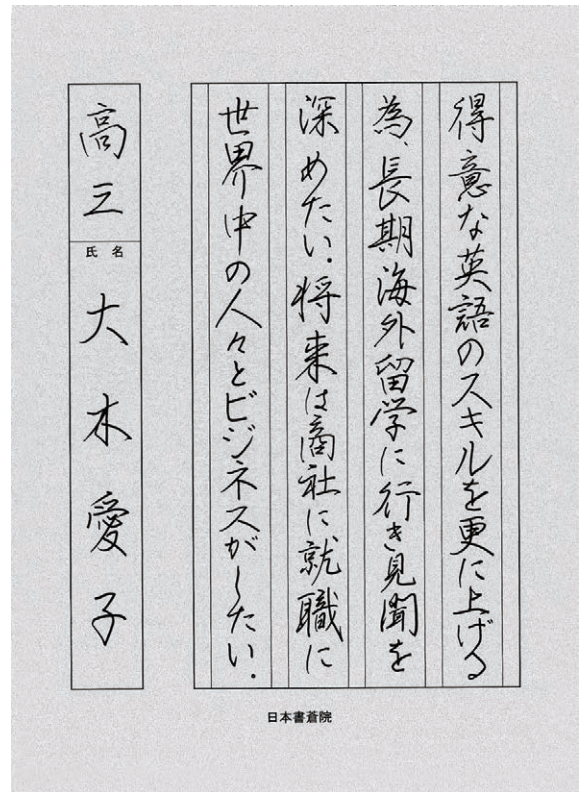 得意な英語のスキルを更に上げる
為、長期海外留学に行き見聞を
深めたい。将来は商社に就職に
世界中の人々とビジネスがしたい。
高三
氏名
大木愛子
日本書蒼院